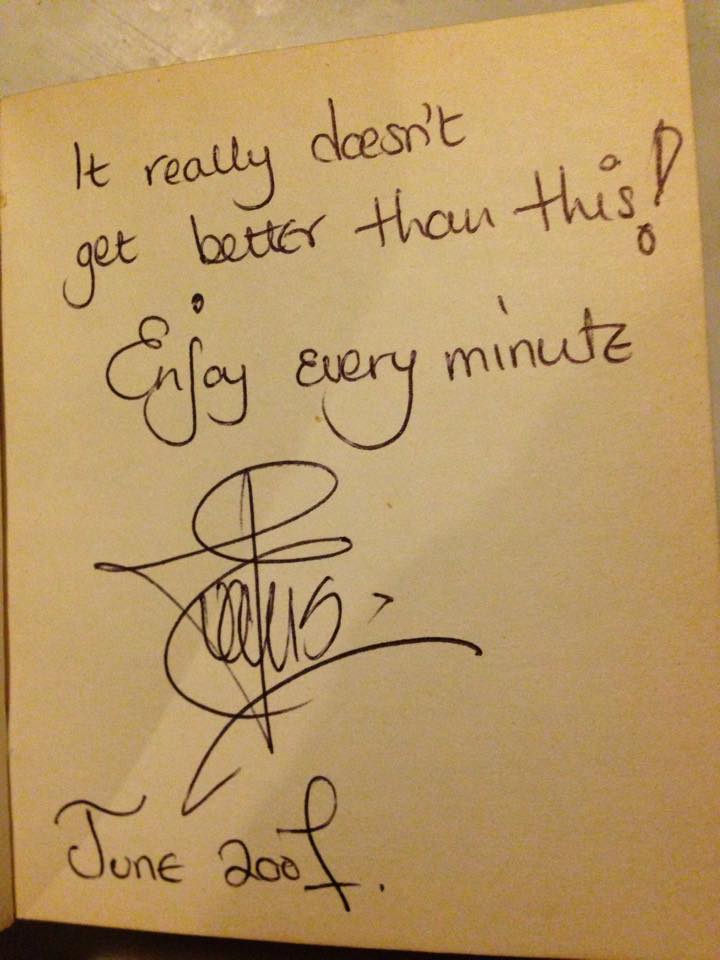 It really doesn't
get better than this!
Enjoy every minute
June 2007.